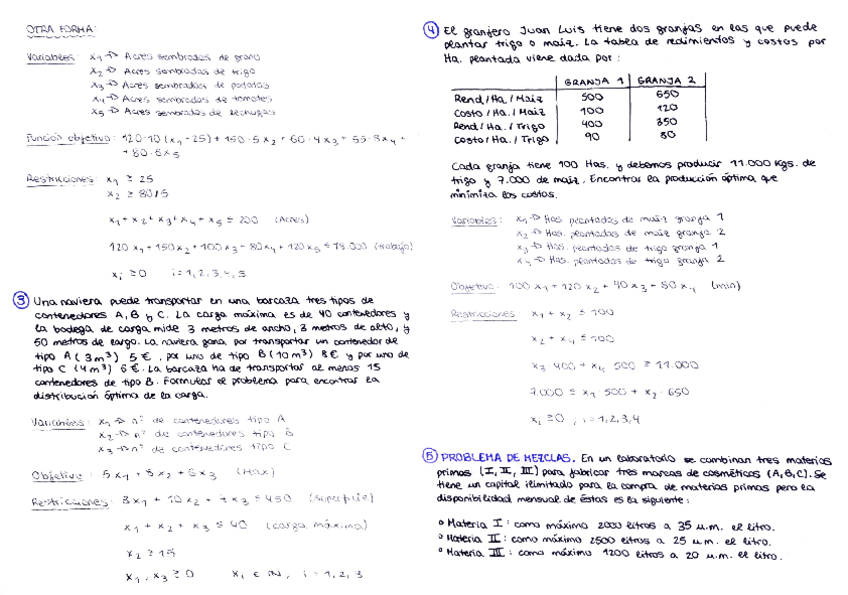 OTRA FORMA:
Variables: x₁ → Acres sembrados de grano
x₂ → Acres sembrados de trigo
x₃ → Acres sembrados de patatas
x₄ → Acres sembrados de tomates
x₅ → Acres sembrados de lechugas
Función objetivo: 120·10 (x₁-25) + 150·5x₂ + 60·4x₃ + 55·8x₄ +
+ 80·6x₅
Restricciones: x₁ ≥ 25
x₂ ≥ 80/5
x₁ + x₂ + x₃ + x₄ + x₅ ≤ 200 (Acres)
120x₁ + 150x₂ + 100x₃ + 80x₄ + 120x₅ ≤ 18.000 (trabajo)
xᵢ ≥ 0 i = 1, 2, 3, 4, 5
③ Una naviera puede transportar en una barcaza tres tipos de
contenedores A, B y C. La carga máxima es de 40 contenedores y
la bodega de carga mide 3 metros de ancho, 3 metros de alto, y
50 metros de largo. La naviera gana por transportar un contenedor de
tipo A (3m³) 5 €, por uno de tipo B (10m³) 8€ y por uno de
tipo C (4m³) 6 €. La barcaza ha de transportar al menos 15
contenedores de tipo B. Formular el problema para encontrar la
distribución óptima de la carga.
Variables: x₁ → nº de contenedores tipo A
x₂ → nº de contenedores tipo B
x₃ → nº de contenedores tipo C
Objetivo: 5x₁ + 8x₂ + 6x₃ (Max)
Restricciones: 3x₁ + 10x₂ + 4x₃ ≤ 450 (superficie)
x₁ + x₂ + x₃ ≤ 40 (carga máxima)
x₂ ≥ 15
x₁, x₃ ≥ 0 xᵢ ∈ ℕ, i = 1, 2, 3
④ El granjero Juan Luis tiene dos granjas en las que puede
plantar trigo o maíz. La tabla de rendimientos y costos por
Ha. plantada viene dada por:
GRANJA 1 GRANJA 2
Rend/Ha./Maíz 500 650
Costo/Ha./Maíz 100 120
Rend/Ha./Trigo 400 350
Costo/Ha./Trigo 90 80
Cada granja tiene 100 Has. y debemos producir 11.000 Kgs. de
trigo y 7.000 de maíz. Encontrar la producción óptima que
minimiza los costos.
Variables: x₁ → Has. plantadas de maíz granja 1
x₂ → Has. plantadas de maíz granja 2
x₃ → Has. plantadas de trigo granja 1
x₄ → Has. plantadas de trigo granja 2
Objetivo: 100x₁ + 120x₂ + 90x₃ + 80x₄ (min)
Restricciones x₁ + x₃ ≤ 100
x₂ + x₄ ≤ 100
7.000 ≤ x₁ 500 + x₂ · 650
xᵢ ≥ 0, i = 1, 2, 3, 4
⑤ PROBLEMA DE MEZCLAS. En un laboratorio se combinan tres materias
primas (I, II, III) para fabricar tres marcas de cosméticos (A, B, C). Se
tiene un capital ilimitado para la compra de materias primas pero la
disponibilidad mensual de éstas es la siguiente:
• Materia I: como máximo 2000 litros a 35 u.m. el litro.
• Materia II: como máximo 2500 litros a 25 u.m. el litro.
• Materia III: como máximo 1200 litros a 20 u.m. el litro.